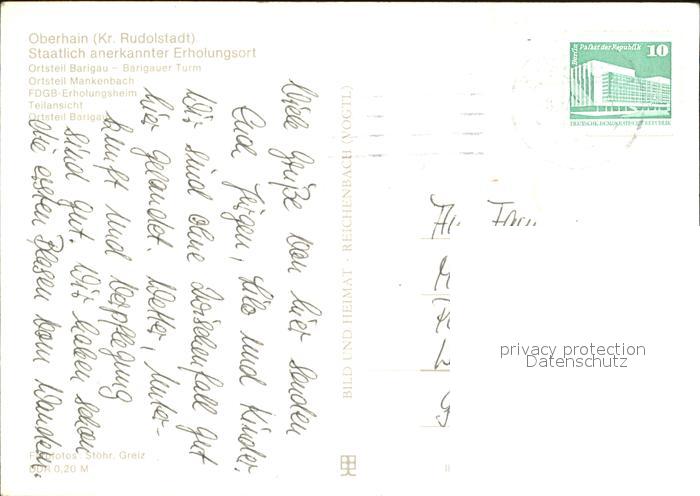 Oberhain (Kr. Rudolstadt)
Staatlich anerkannter Erholungsort
Ortsteil Barigau – Barigauer Turm
Ortsteil Mankenbach
FDGB-Erholungsheim
Teilansicht
Ortsteil Barigau
Viele Grüße von hier senden
Euch Jürgen, Lilo und Kinder.
Wir sind ohne Zwischenfall gut
hier gelandet. Wetter, Unter-
kunft und Verpflegung
sind gut. Wir haben schon
die ersten Blasen vom Wandern.
Stöhr, Greiz
DDR 0,20 M
BILD UND HEIMAT · REICHENBACH (VOGTL)
Berlin Palast der Republik
10
DEUTSCHE DEMOKRATISCHE REPUBLIK
privacy protection
Datenschutz